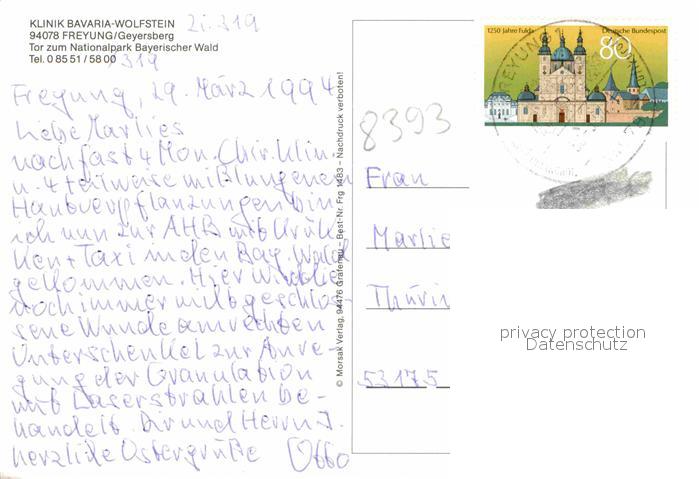 KLINIK BAVARIA-WOLFSTEIN
94078 FREYUNG/Geyersberg
Tor zum Nationalpark Bayerischer Wald
Tel. 0 85 51 / 58 00 319
Zi. 319
Freyung, 29. März 1994
Liebe Marlies
nach fast 4 Mon. Chir. Klin.
u. 4 teilweise mißlungenen
Hautverpflanzungen bin
ich nun zur AHB mit Krük-
ken + Taxi in den Bay. Wald
gekommen. Hier wird die
noch immer nicht geschlos-
sene Wunde am rechten
Unterschenkel zur Anre-
gung der Granulation
mit Laserstrahlen be-
handelt. Dir und Herrn J.
herzliche Ostergrüße Otto
© Morsak Verlag, 94476 Grafenau – Best-Nr. Frg 1483 – Nachdruck verboten!
1250 Jahre Fulda
Deutsche Bundespost
80
FREYUNG
8393
Frau
Marlie
Thürin
53175
privacy protection
Datenschutz